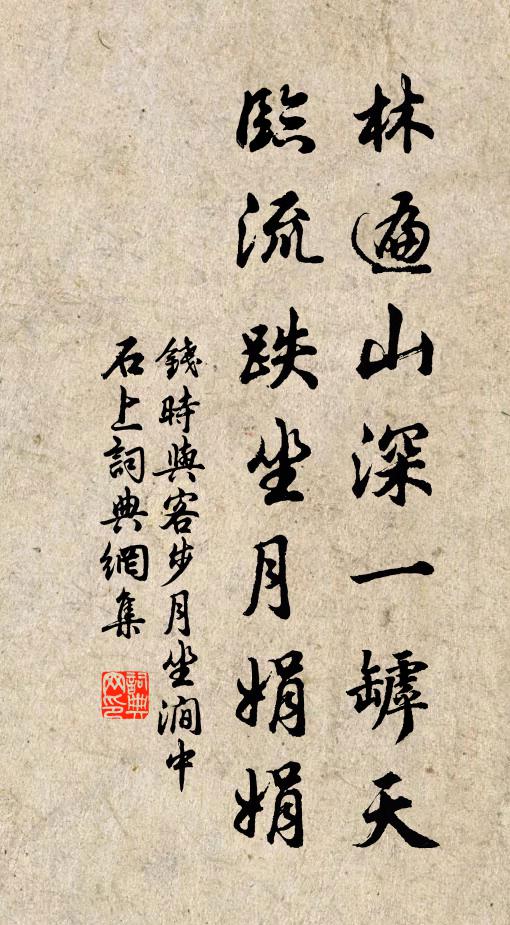 林遍山深一罅天
臨流跌坐月娟娟
錢時與客步月坐澗中
石上詞典網集
詞典
网印